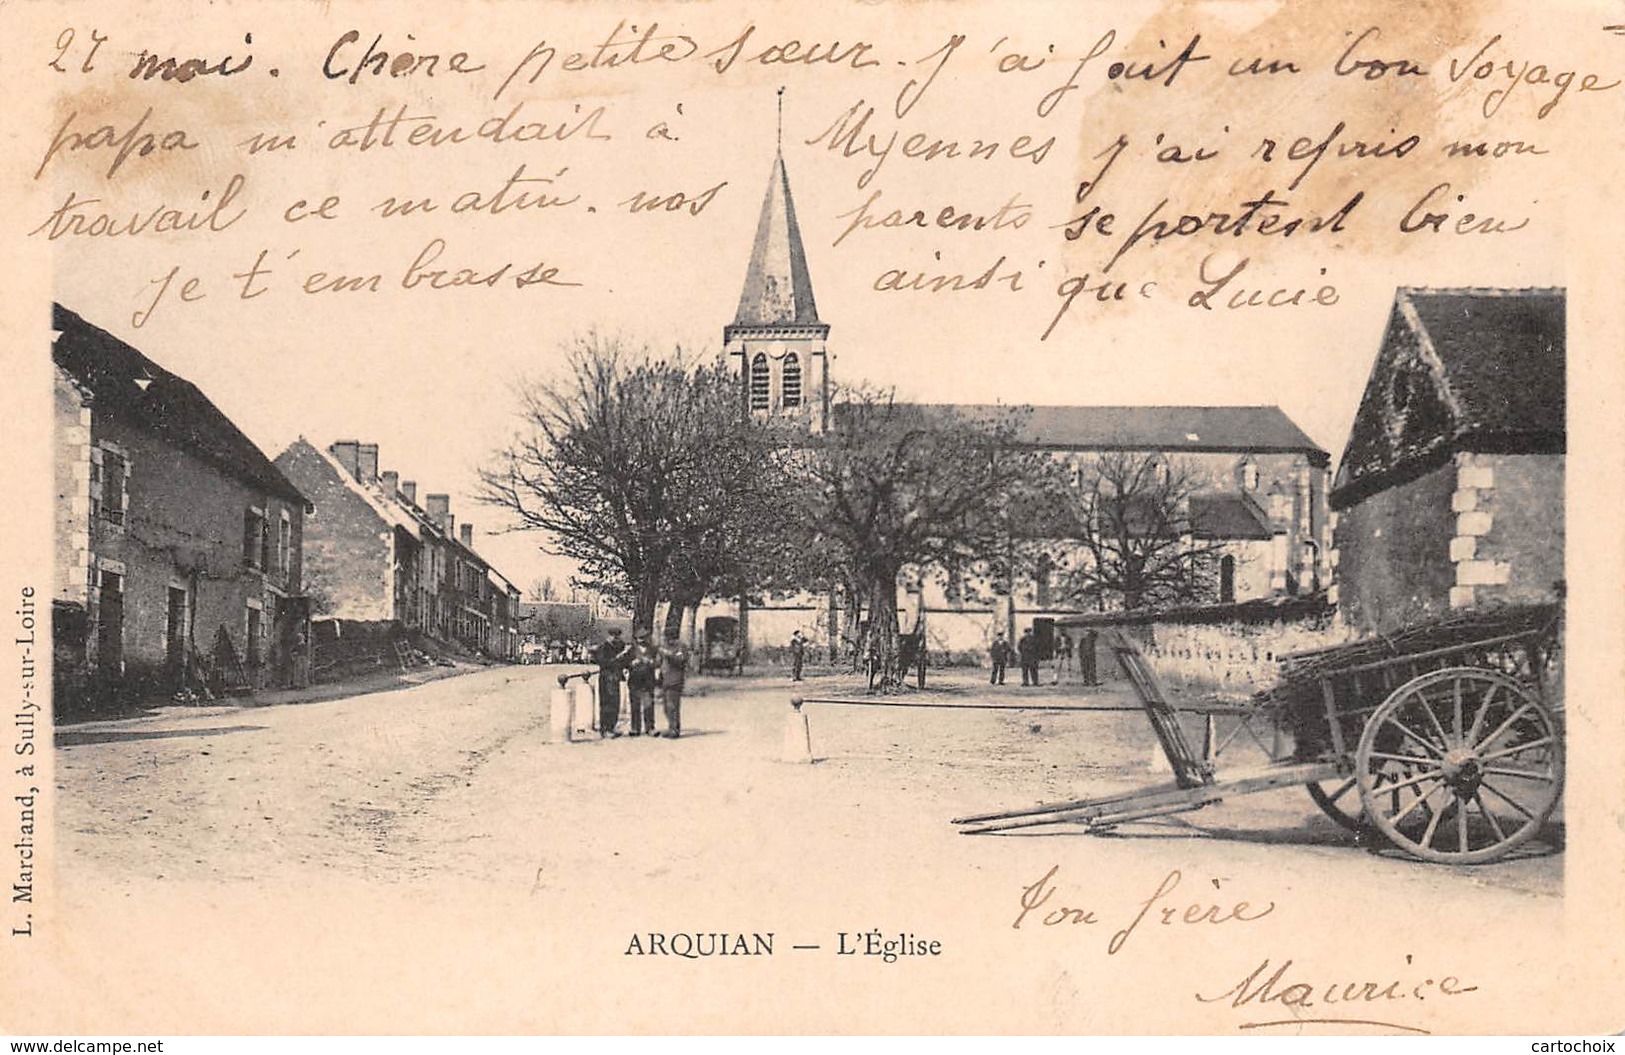 27 mai. Chère petite sœur. J'ai fait un bon voyage
papa m'attendait à Myennes j'ai repris mon
travail ce matin. nos parents se portent bien
je t'embrasse ainsi que Lucie
L. Marchand, à Sully-sur-Loire
Ton frère
ARQUIAN — L'Église
Maurice
www.delcampe.net
cartochoix